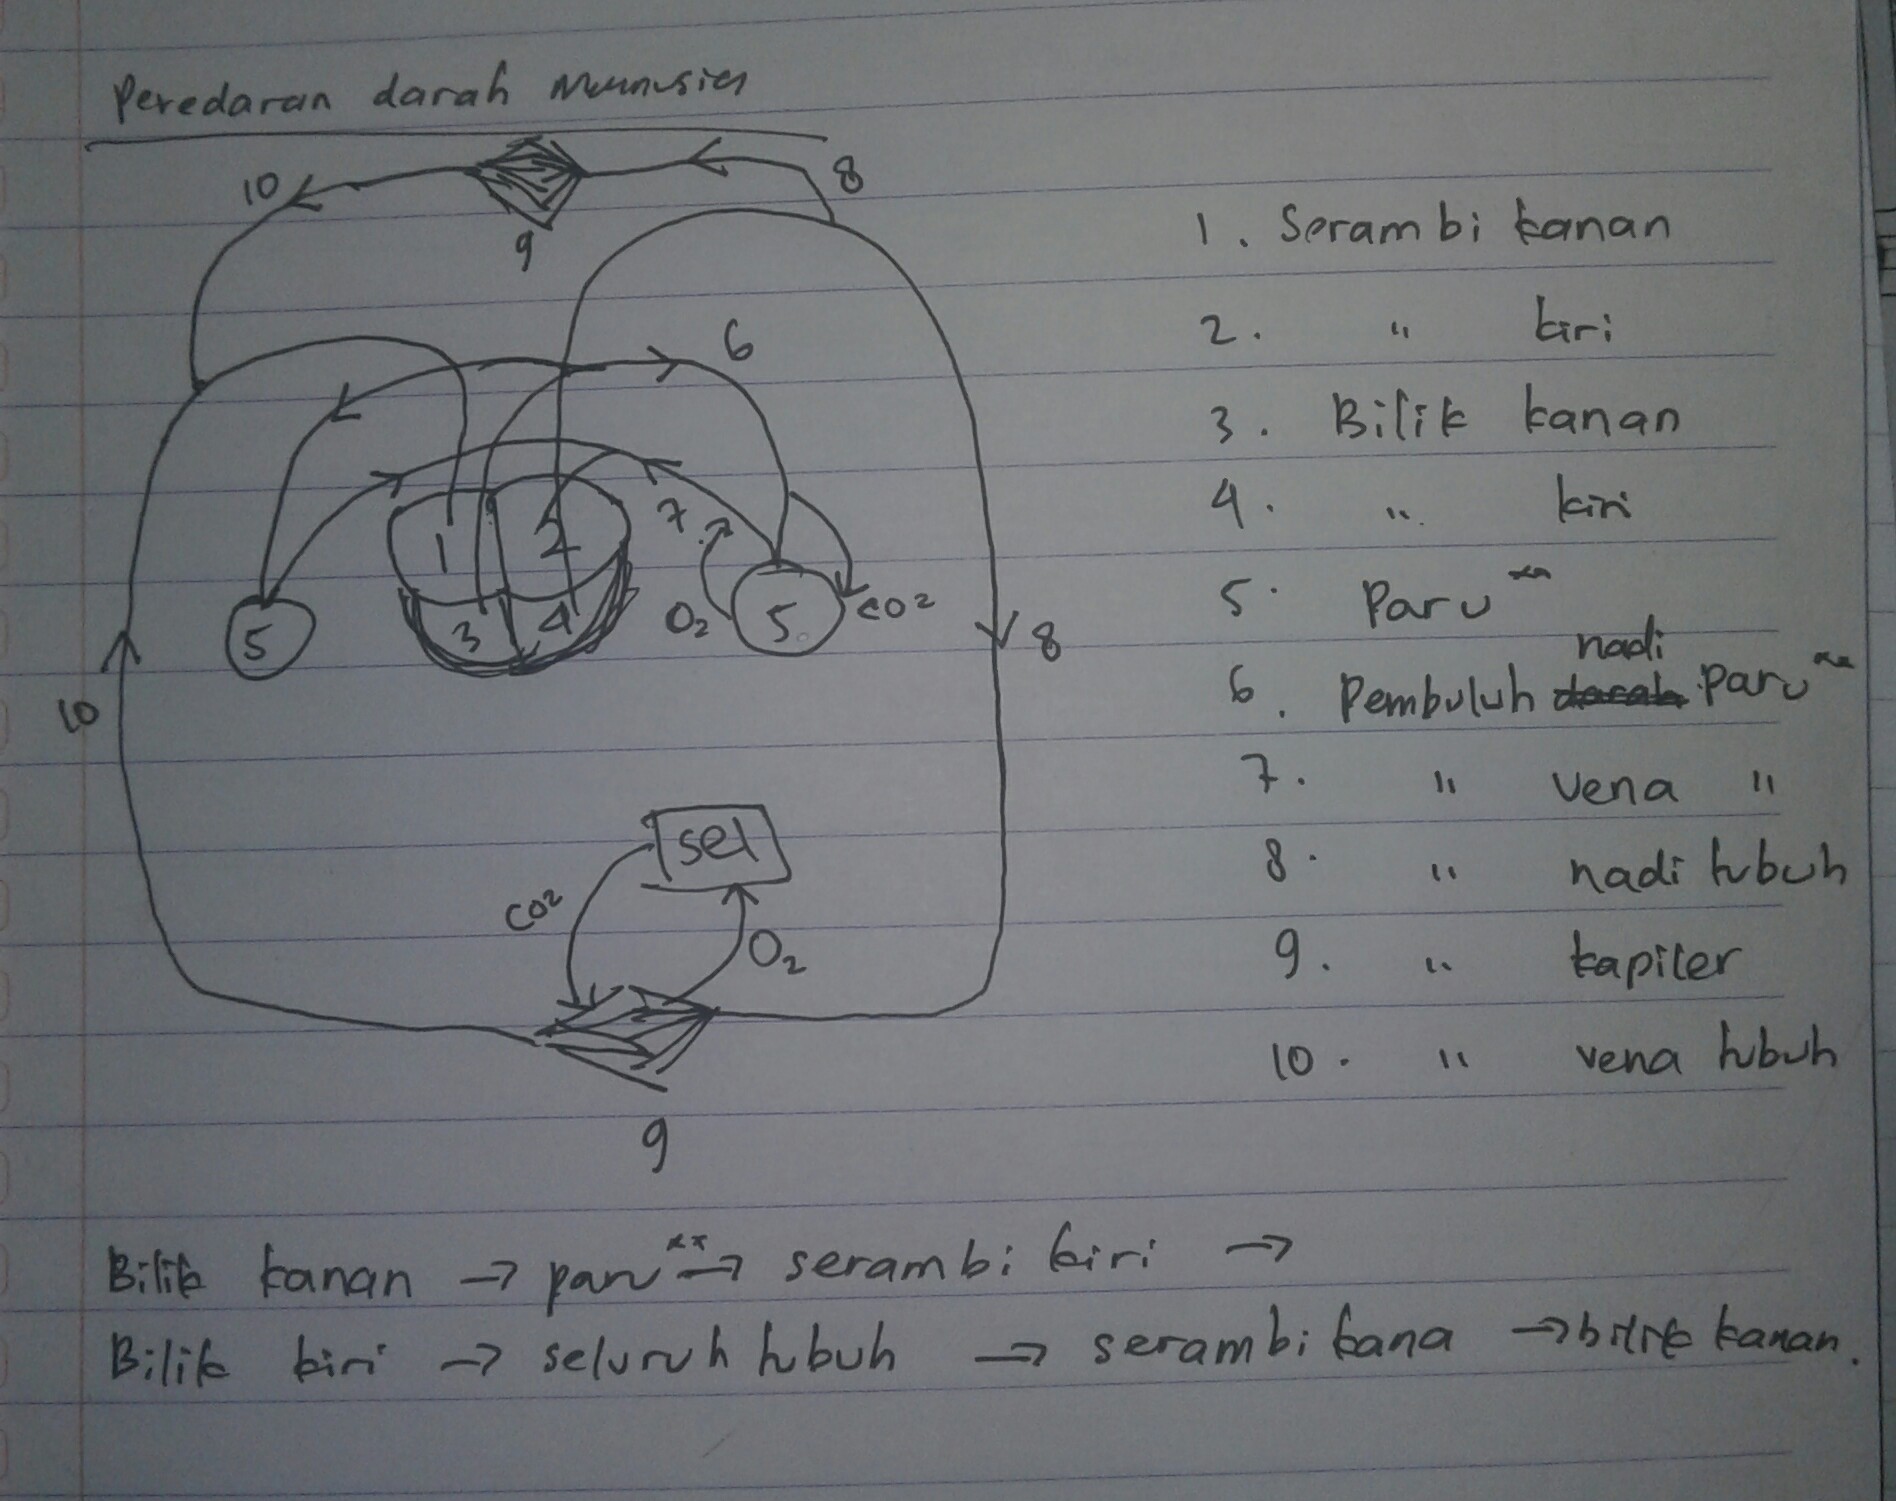 Peredaran darah manusia
10
8
9
6
7
1
2
3
4
5
O2
5
CO2
8
10
sel
CO2
O2
9
1. Serambi kanan
2. " kiri
3. Bilik kanan
4. " kiri
5. Paru xx
nadi
6. Pembuluh darah paru xx
7. " vena "
8. " nadi tubuh
9. " kapiler
10. " vena tubuh
Bilik kanan → paru xx → serambi kiri →
Bilik kiri → seluruh tubuh → serambi kana → bilik kanan.